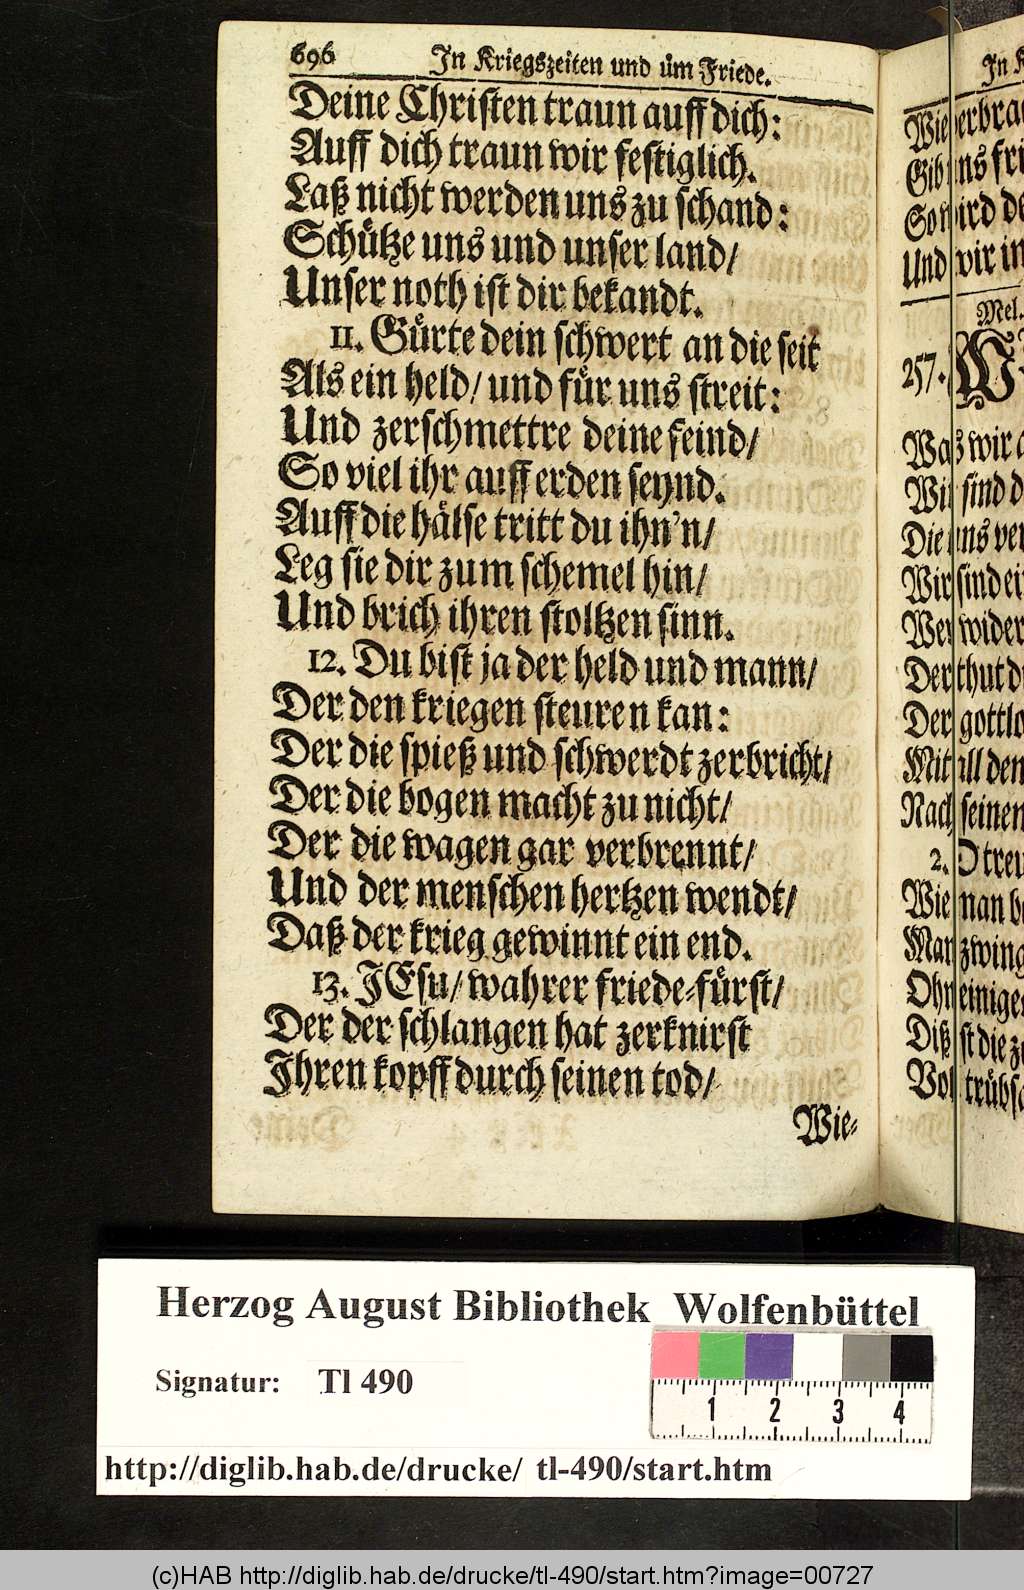 696 In Kriegszeiten und üm Friede.
Deine Christen traun auff dich:
Auff dich traun wir festiglich.
Laß nicht werden uns zu schand:
Schütze uns und unser land/
Unser noth ist dir bekandt.
11. Gürte dein schwert an die seit
Als ein held/ und für uns streit:
Und zerschmettre deine feind/
So viel ihr auff erden seynd.
Auff die hälse tritt du ihn'n/
Leg sie dir zum schemel hin/
Und brich ihren stoltzen sinn.
12. Du bist ja der held und mann/
Der den kriegen steuren kan:
Der die spieß und schwerdt zerbricht/
Der die bogen macht zu nicht/
Der die wagen gar verbrennt/
Und der menschen hertzen wendt/
Daß der krieg gewinnt ein end.
13. JEsu/ wahrer friede-fürst/
Der der schlangen hat zerknirst
Ihren kopff durch seinen tod/
Wie-
In
Gib uns
So wird
Und wir in
Mel.
257. W
wir
sind
Die uns
Wir sind
wider
Der thut
Der gottlo
Mit all den
Nach seinen
2. O treu
Wie man
Man zwing
Ohn einiges
Diß ist die
Herzog August Bibliothek Wolfenbüttel
Signatur: Tl 490
1 2 3 4
http://diglib.hab.de/drucke/ tl-490/start.htm
(c)HAB http://diglib.hab.de/drucke/tl-490/start.htm?image=00727